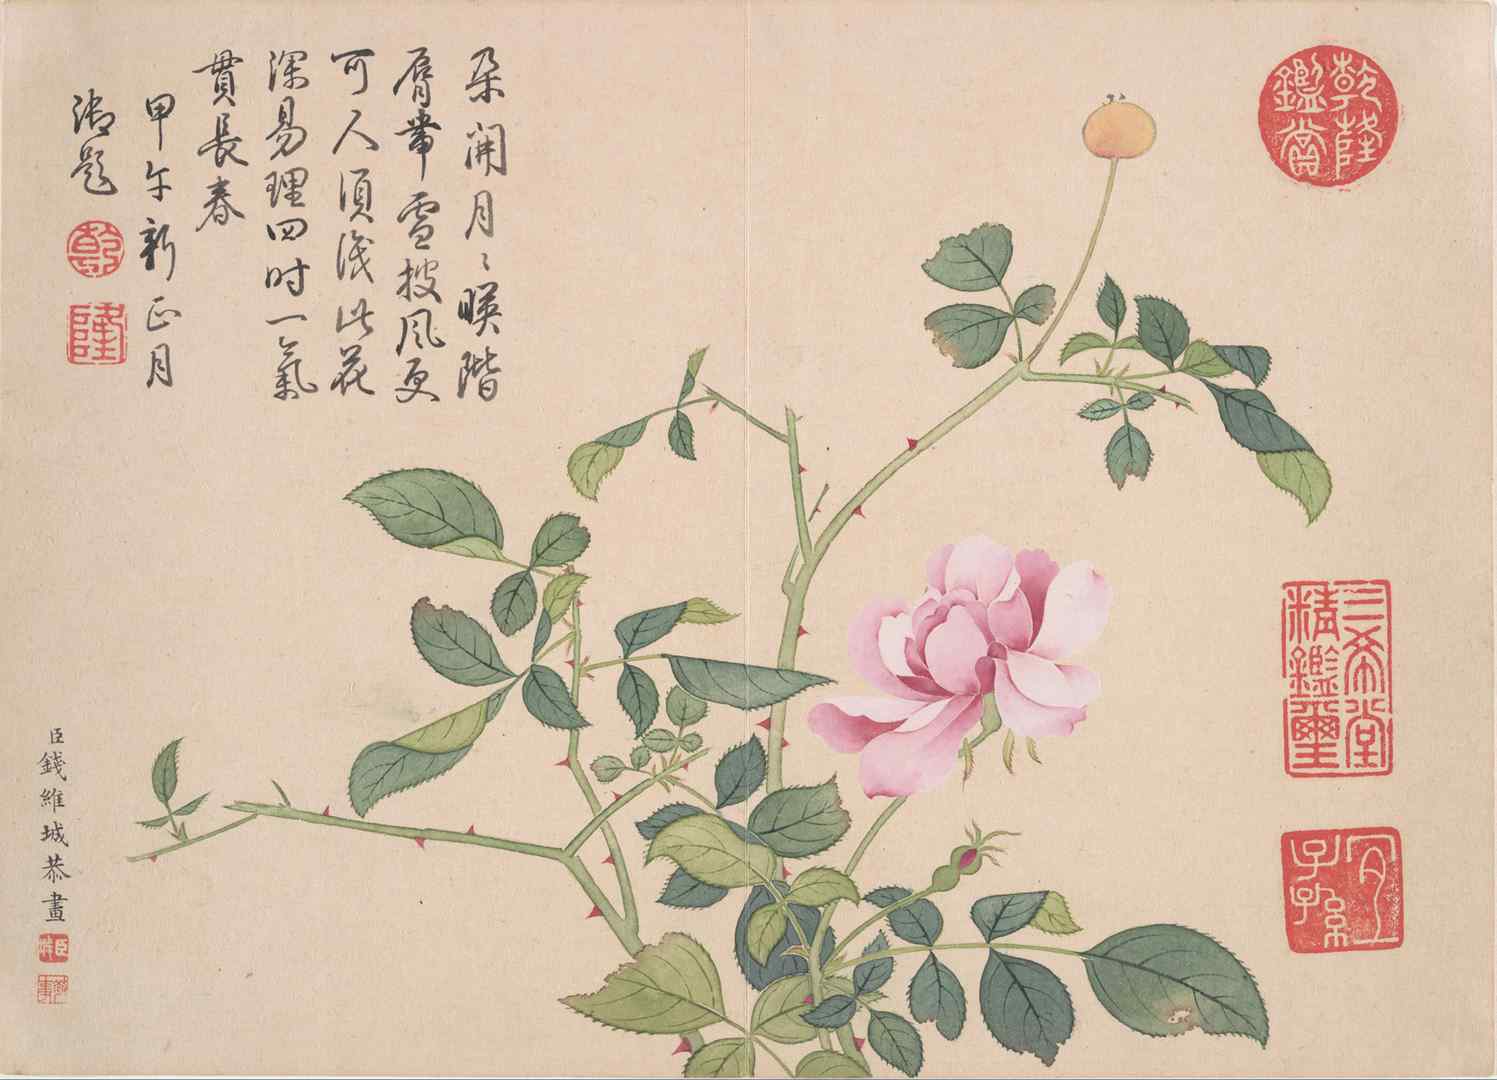 乾隆
鑑賞
三希堂
精鑑璽
宜
子孫
朵開月〻暎階
脣帶雪披風更
可人須識此花
深易理四时一氣
貫長春
甲午新正月
御題
乾
隆
臣錢維城恭畫
臣城